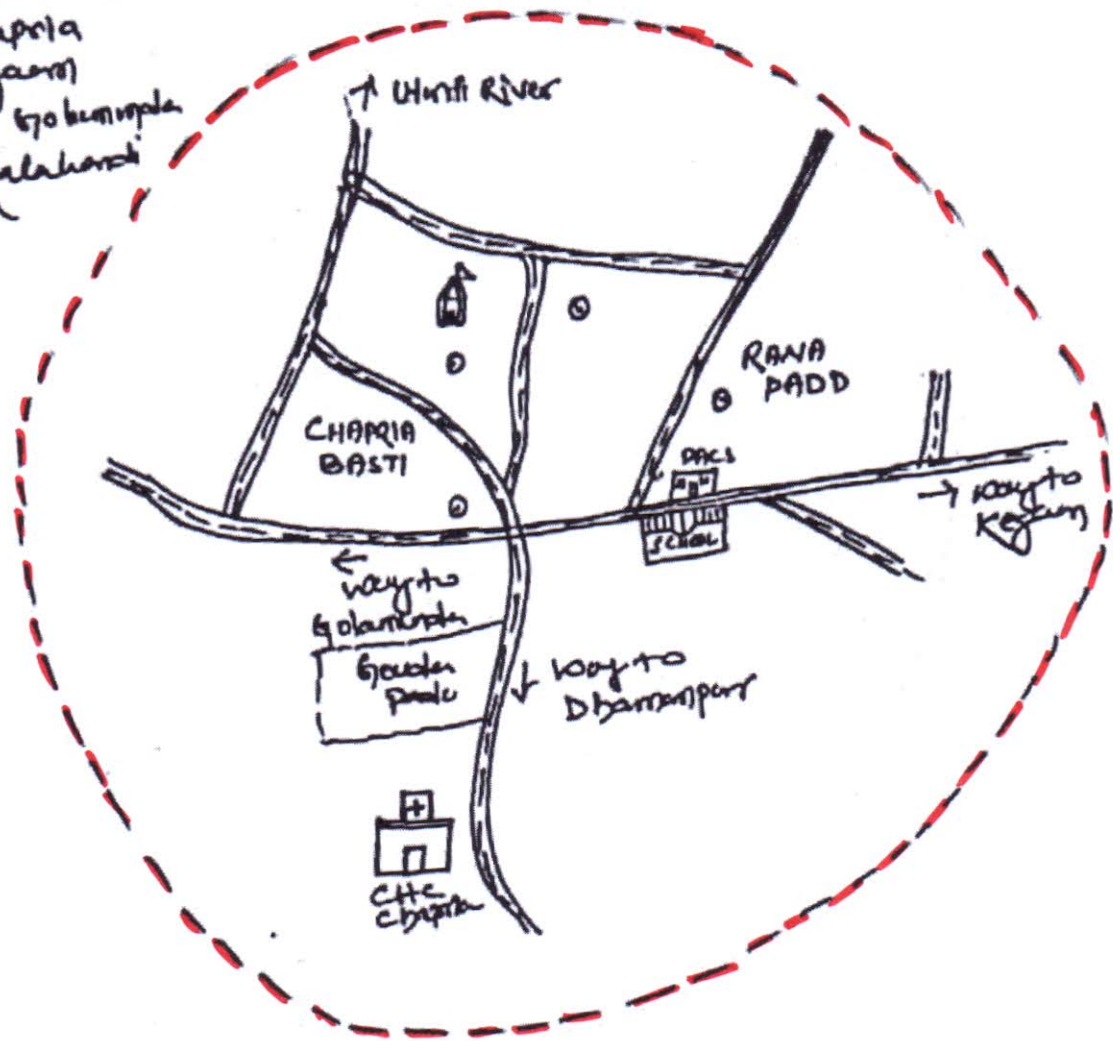 Golamunda
Kalahandi
River
RANA
PADD
CHAPRIA
BASTI
PACS
SCHOOL
→ way to
← way to
Golamunda
Gouda
Pada
↓ way to
Dhamanpur
CHC
Chapria